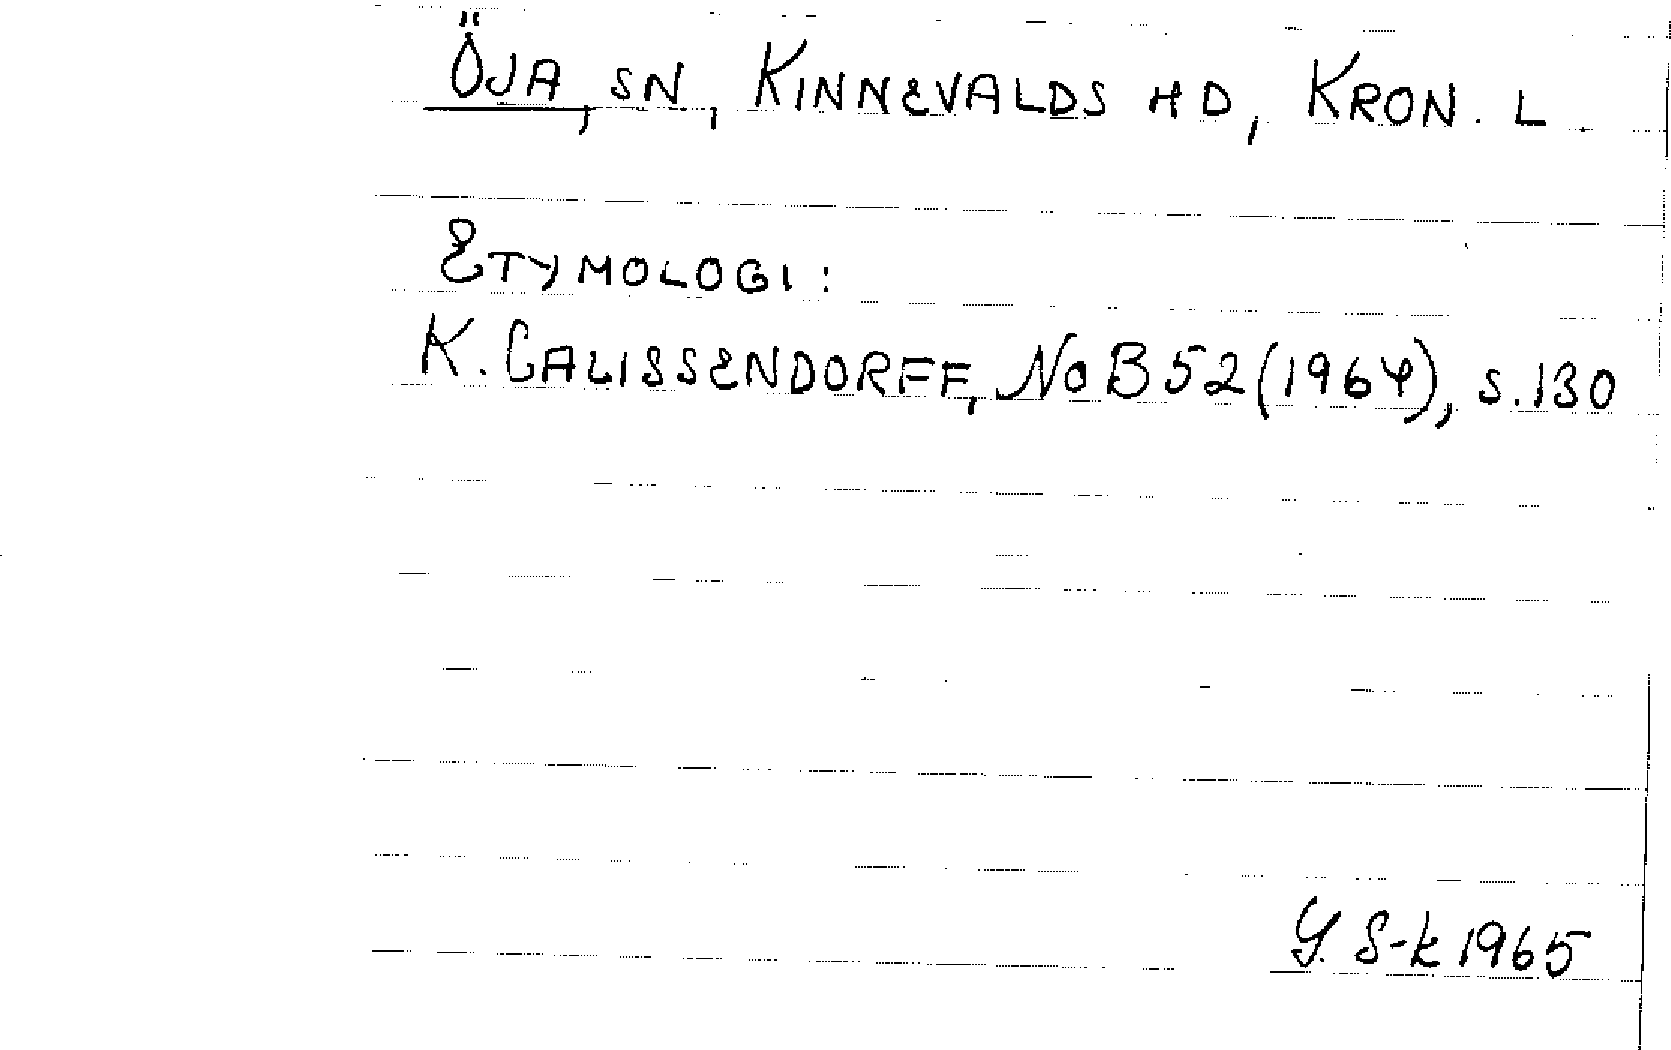 ÖJA, SN, KINNEVALDS HD, KRON. L.
ETYMOLOGI:
K. CALISSENDORFF, NoB 52 (1964), S. 130
Y. S-k 1965